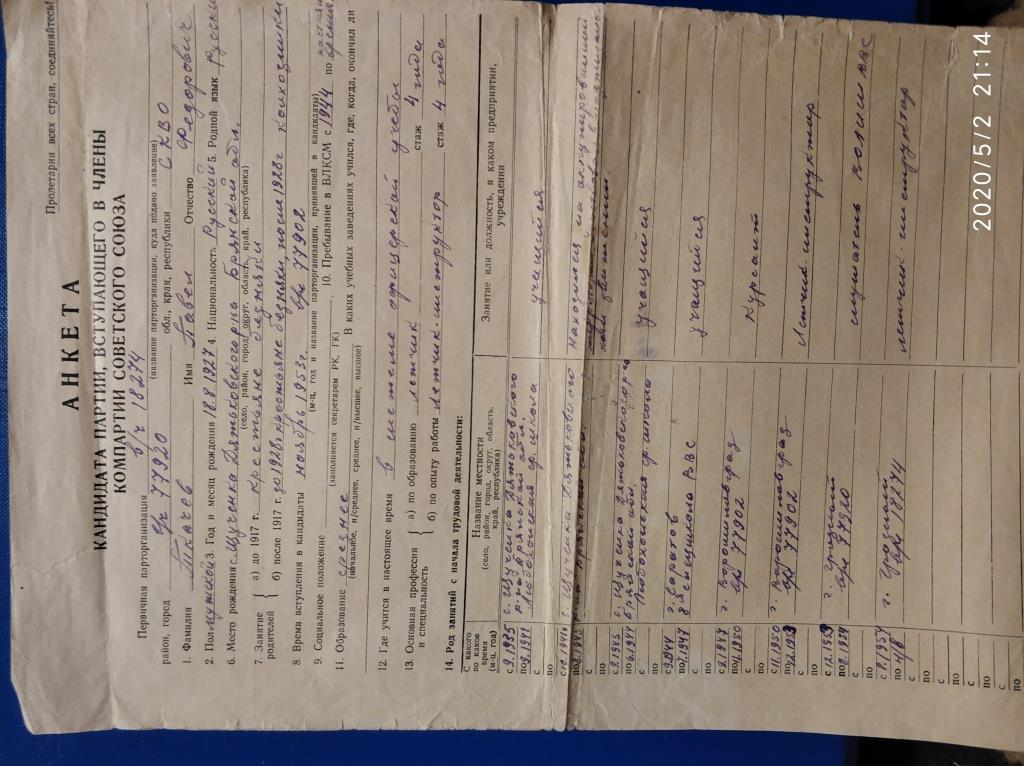 Пролетарии всех стран, соединяйтесь!
АНКЕТА
КАНДИДАТА ПАРТИИ, ВСТУПАЮЩЕГО В ЧЛЕНЫ
КОМПАРТИИ СОВЕТСКОГО СОЮЗА
Первичная парторганизация в/ч 18274
(название парторганизации, куда подано заявление)
район, город 77920 обл., края, республики СКВО
1. Фамилия Ткачев Имя Павел Отчество Федорович
2. Пол мужской 3. Год и месяц рождения 18.8.1927 4. Национальность Русский 5. Родной язык Русский
6. Место рождения с. Щученка Дятьковского р-на Брянской обл.
(село, район, город, округ, область, край, республика)
7. Занятие родителей
а) до 1917 г. крестьяне бедняки
б) после 1917 г. до 1928 крестьяне бедняки, после 1928 г. колхозники
8. Время вступления в кандидаты ноябрь 1953 г. 77902
(м-ц, год и название парторганизации, принявшей в кандидаты)
9. Социальное положение 10. Пребывание в ВЛКСМ с 1944 по
(заполняется секретарем РК, ГК)
11. Образование среднее В каких учебных заведениях учился, где, когда, окончил ли
(начальное, н/среднее, среднее, н/высшее, высшее)
12. Где учится в настоящее время в системе офицерской учебы
13. Основная профессия и специальность
а) по образованию летчик стаж 4 года
б) по опыту работы летчик-инструктор стаж 4 года
14. Род занятий с начала трудовой деятельности:
С какого по какое время (м-ц, год)
Название местности
(село, район, город, округ, область, край, республика)
Занятие или должность, в каком предприятии, учреждении
с 9.1935 с. Щученка Дятьковского
по 9.1941 р-на Брянской обл. ср. школа учащийся
с
по
с 10.1941 с. Щученка Дятьковского Находился на оккупированной
по р-на Брянской обл.
с 9. с. Щученка Дятьковского р-на
по 6.1944 Брянской обл. ср. школа учащийся
с 9.1944 г. Саратов
по 7.1947 спецшкола ВВС учащийся
с 8.1947 г. Ворошиловград
по 11.1950 77902 Курсант
с 11.1950 г. Ворошиловград
по 12.1953 77902 Летчик-инструктор
с 12.1953 г. Грозный
по 8.1954 77920 слушатель ВВС
с
по
с 8.1954 г. Грозный
по 18274 летчик-инструктор
с
по
с
по
с
по
с
по
2020/5/2 21:14